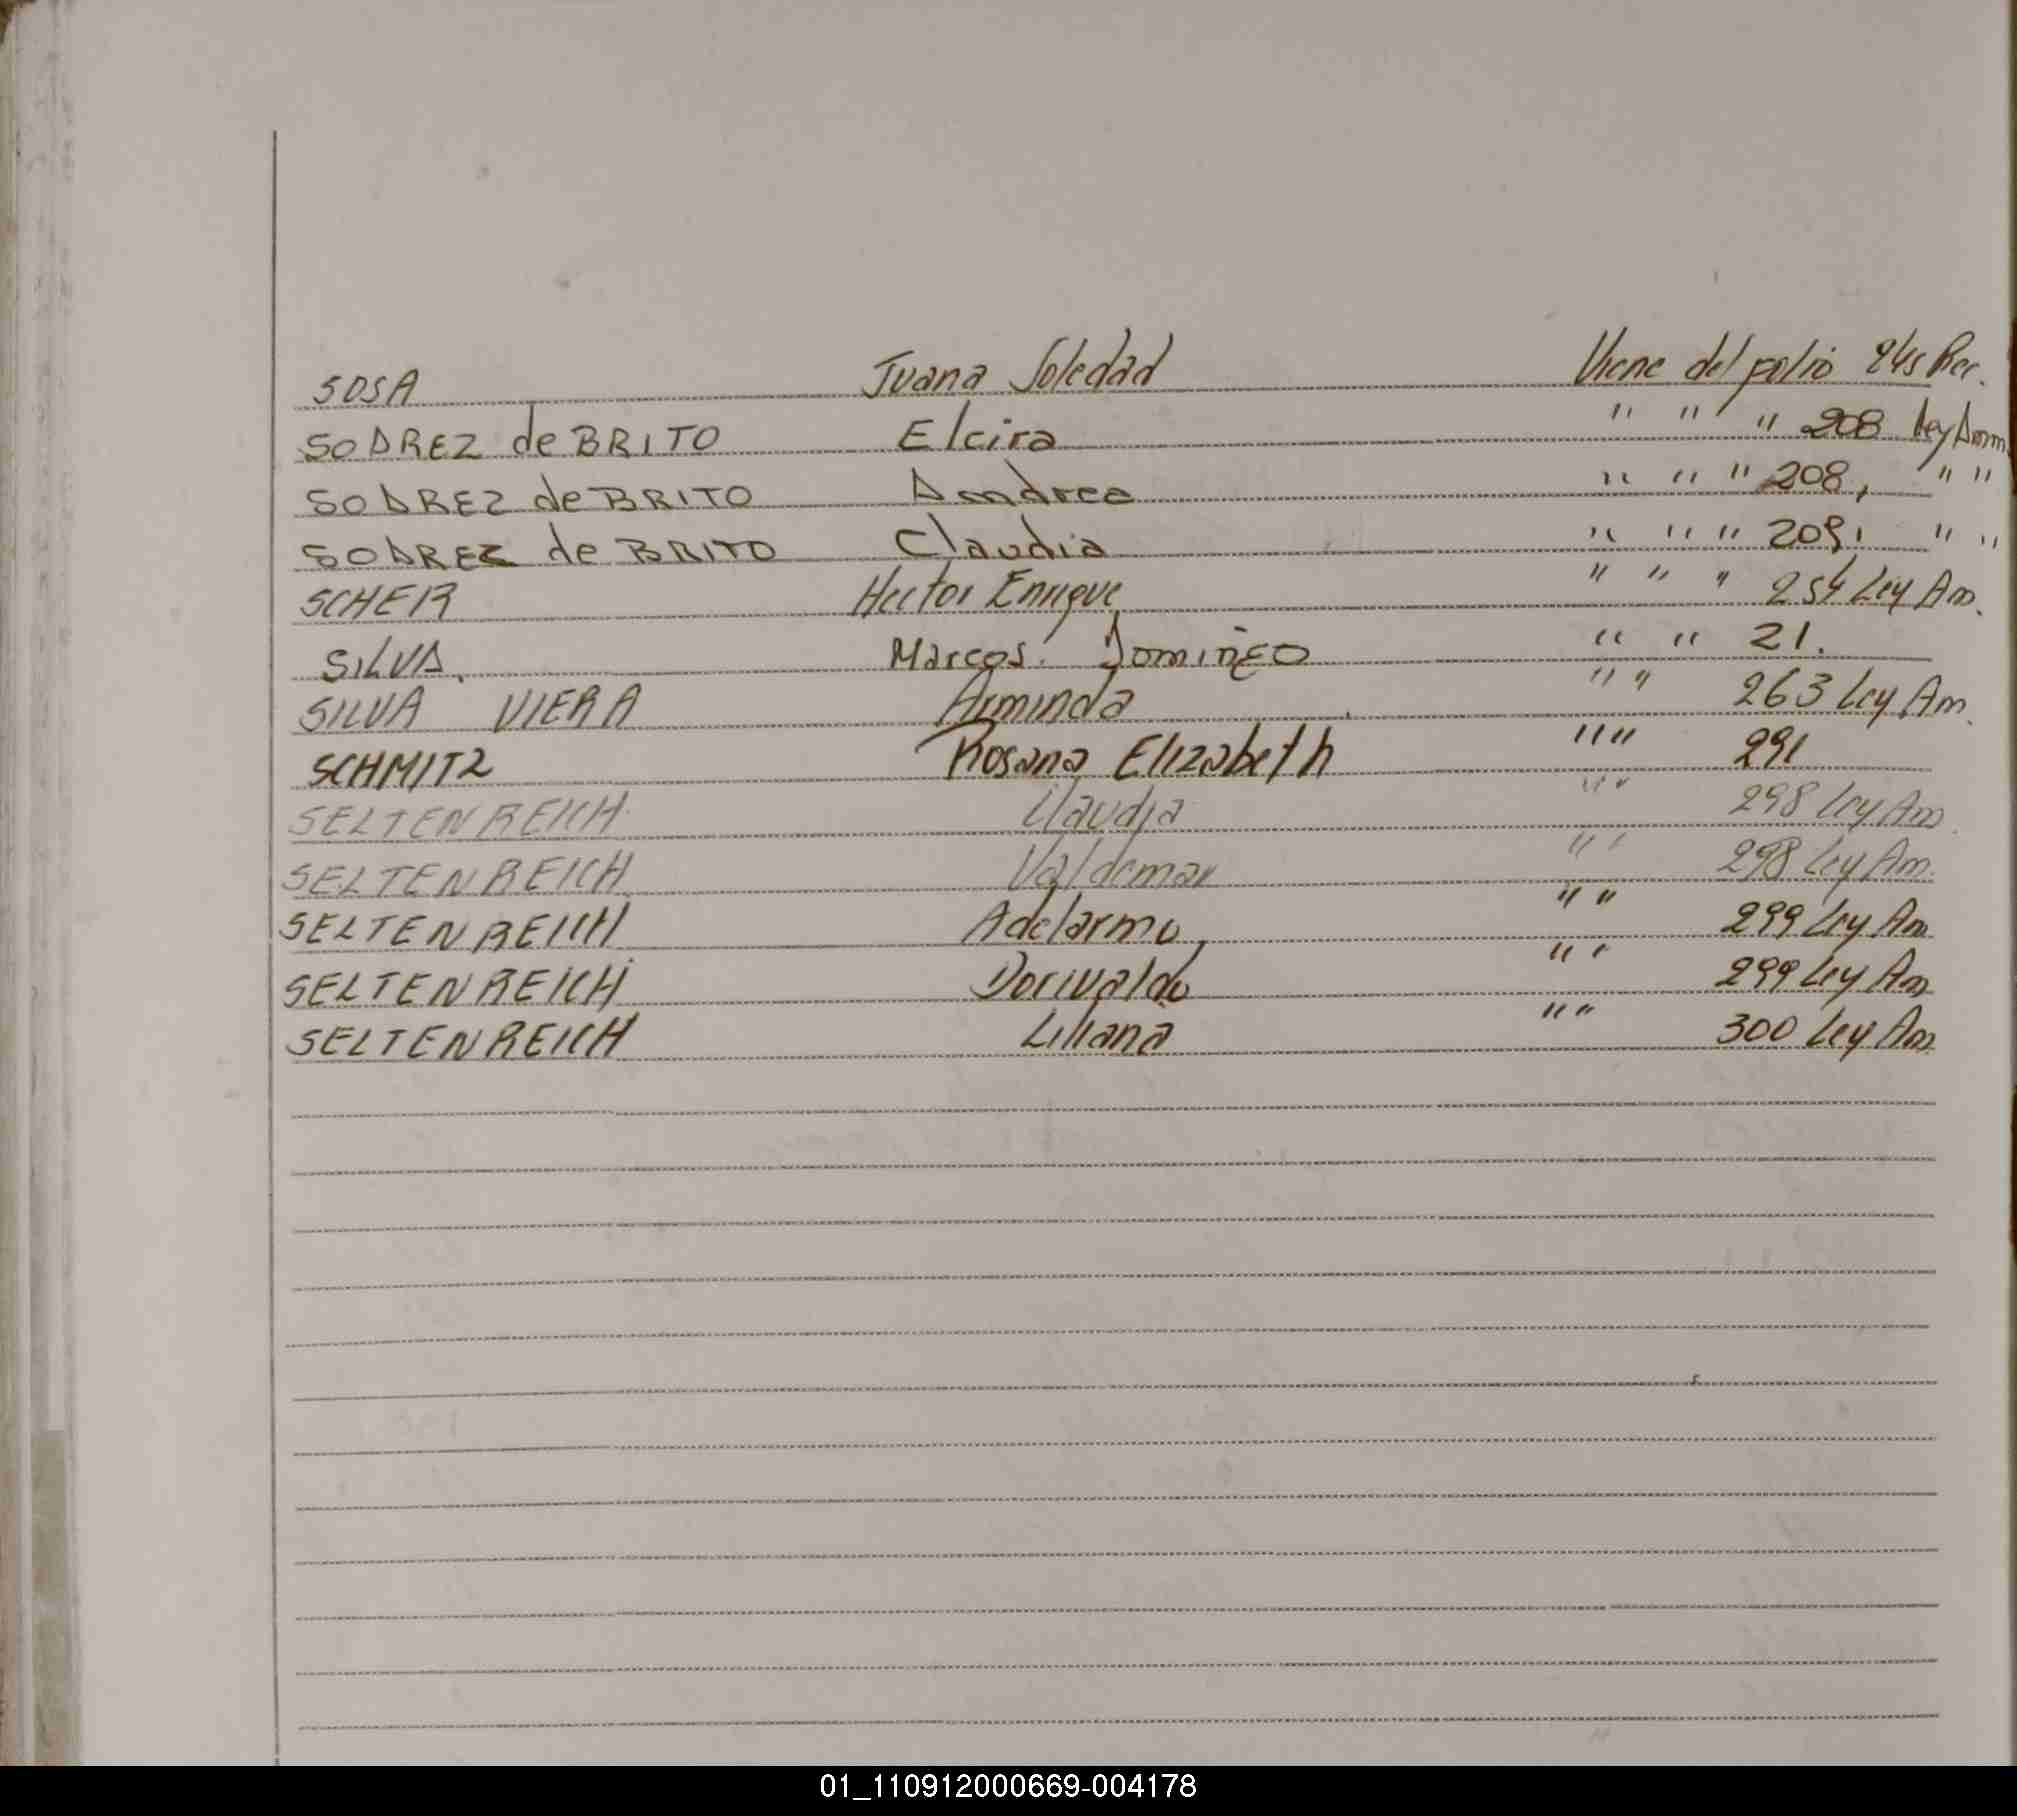 SOSA Juana Soledad Viene del folio 245 Rec.
SODREZ de BRITO Elcira " " " 208 Ley Amn.
SODREZ de BRITO Andrea " " " 208, " "
SODREZ de BRITO Claudia " " " 209, " "
SCHER Hector Enrique " " " 254 Ley Am.
SILVA. Marcos. Domingo " " 21.
SILVA VIERA Arminda " " 263 Ley Am.
SCHMITZ Rosana Elizabeth " " 291
SELTENREICH Claudia " " 298 Ley Am.
SELTENREICH Valdemar " " 298 Ley Am.
SELTENREICH Adelarmo " " 299 Ley Am
SELTENREICH Dorivaldo " " 299 Ley Am
SELTENREICH Liliana " " 300 Ley Am
01_110912000669-004178